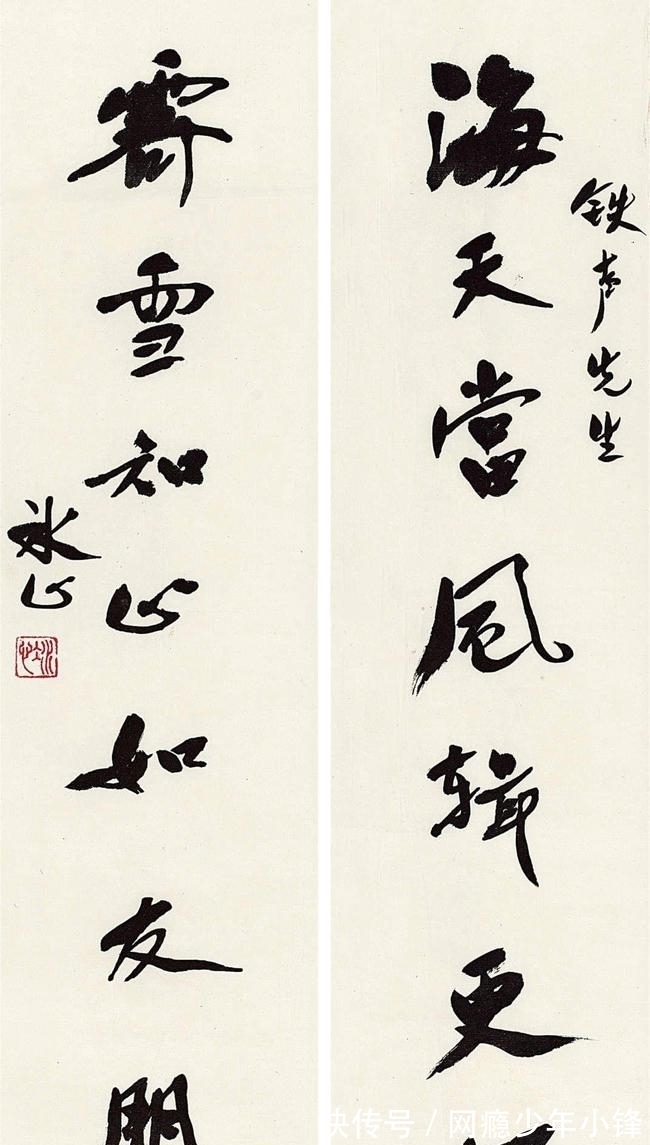 铁声先生
海天當風輯更
霽雪知心如友朋
冰心
快传号 / 网瘾少年小锋